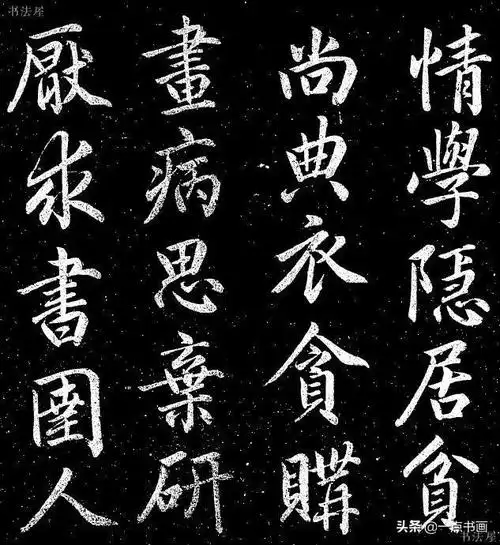 书法屋
情學隱居貧
尚典衣貪購
畫病思棄研
厭求書圉人
头条@一点书画
书法屋